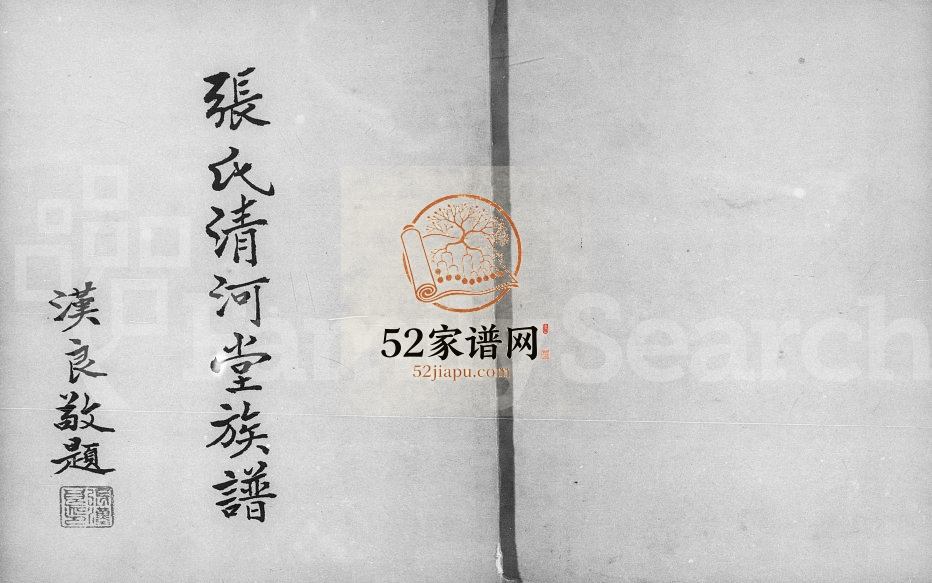 張氏清河堂族譜
漢良敬題
52家谱网
52jiapu.com
FamilySearch